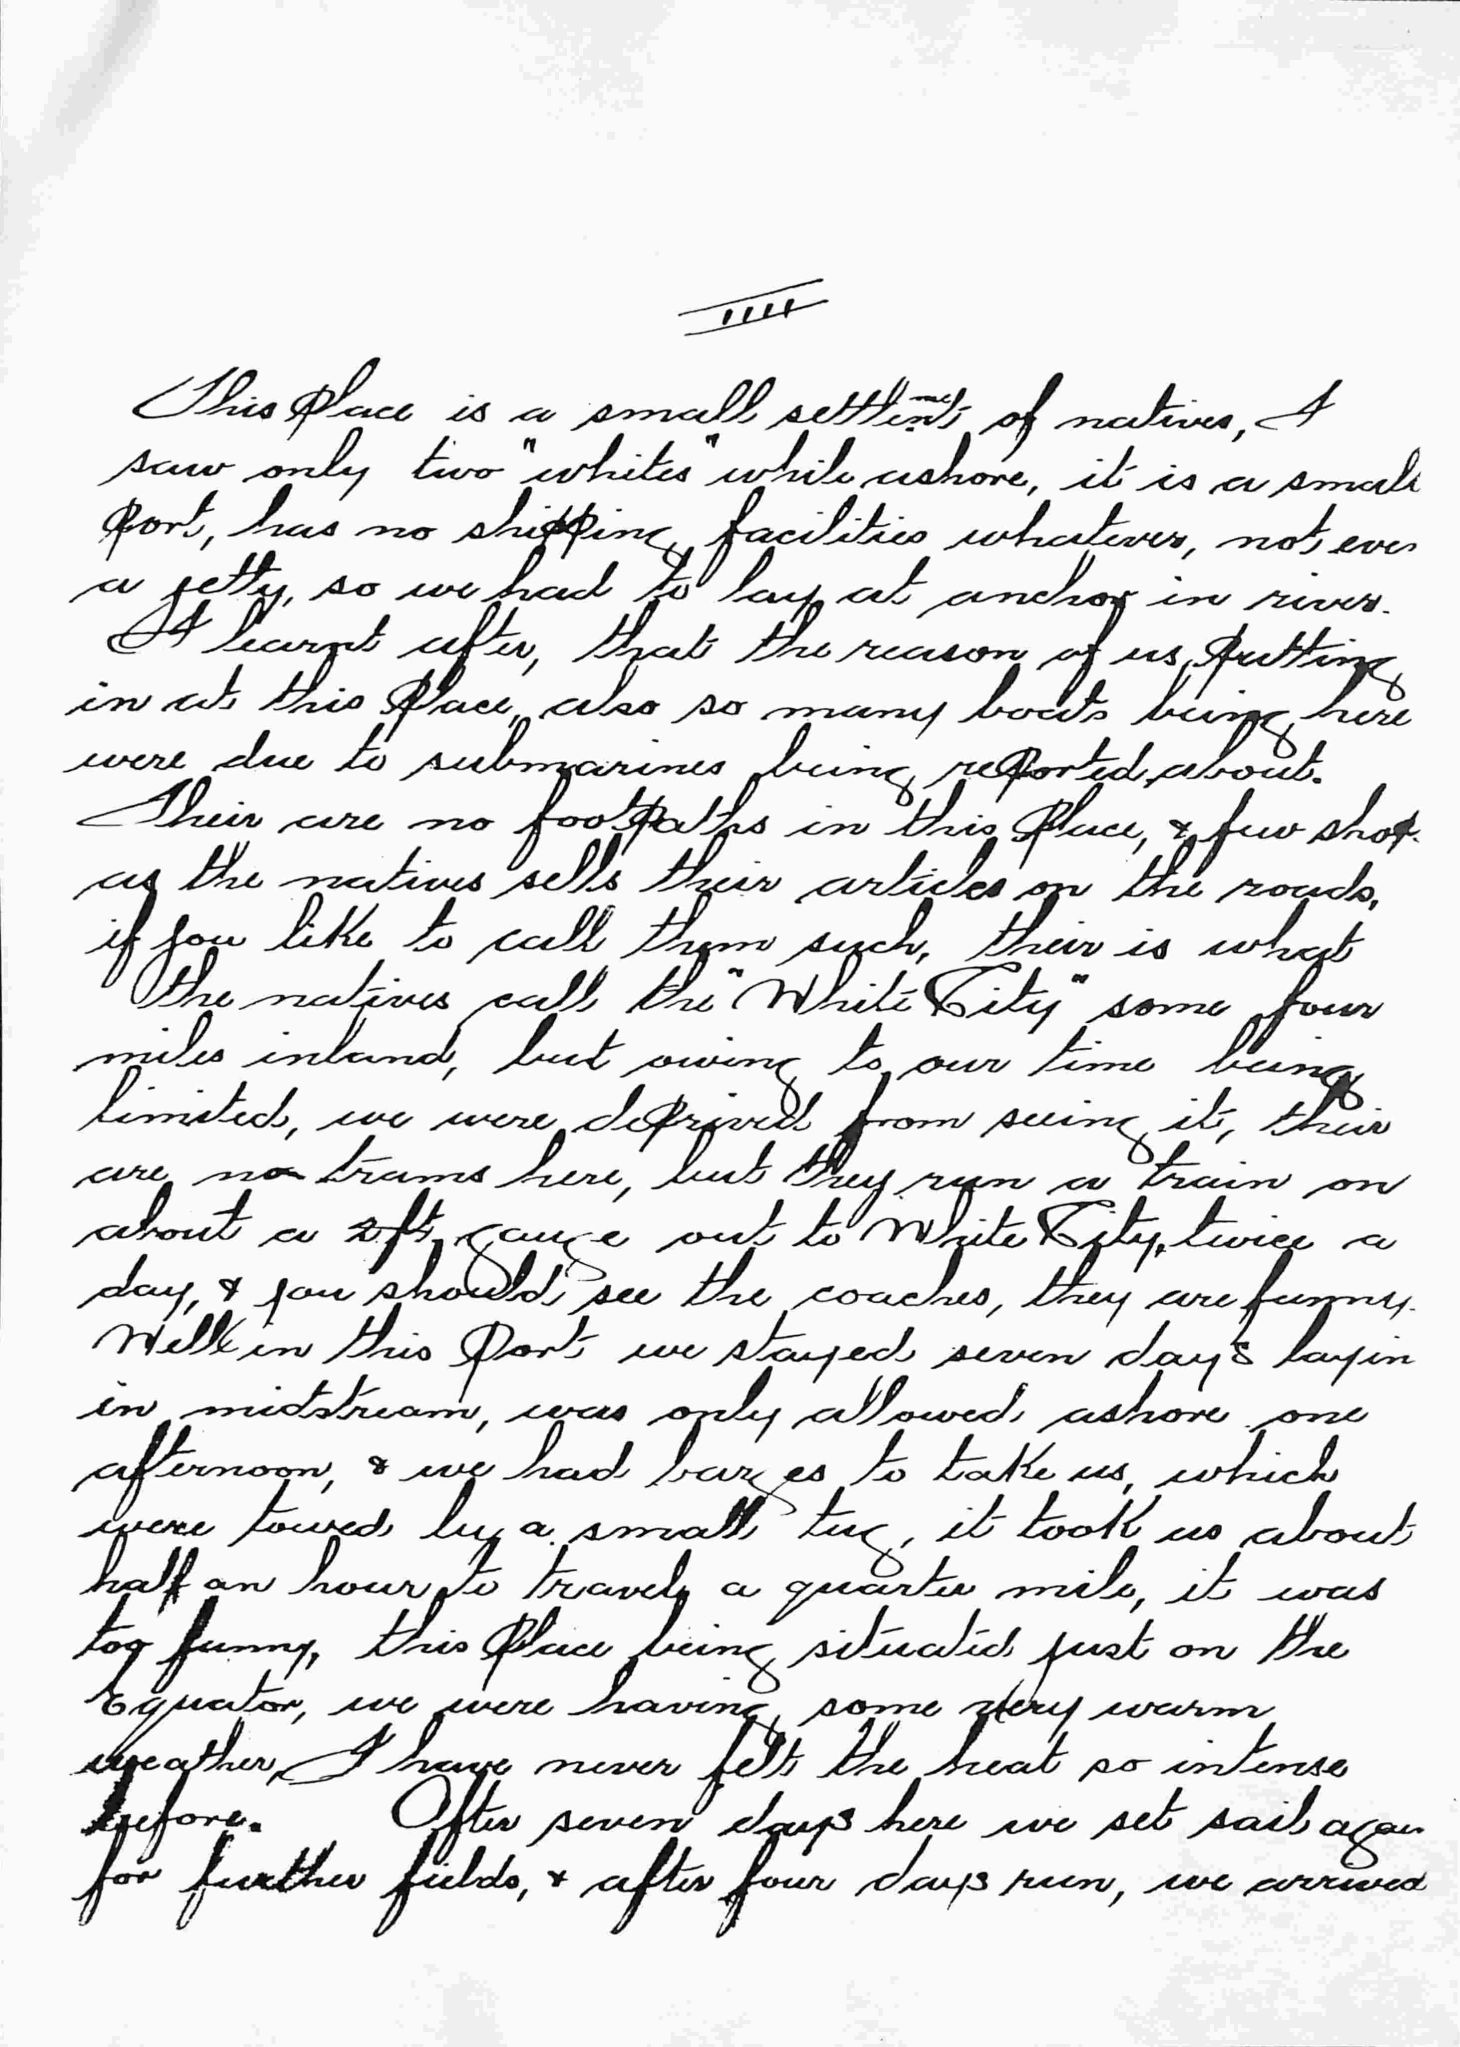 IIII
This Place is a small settlement of natives, I
saw only two "whites" while ashore, it is a small
Port, has no shipping facilities whatever, not even
a jetty, so we had to lay at anchor in river.
I learnt after, that the reason of us Putting
in at this Place, also so many boats being here
were due to submarines being rePorted about.
Their are no footPaths in this Place, & few shop.
as the natives sells their articles on the roads,
if you like to call them such, their is what
the natives call the "White City" some four
miles inland, but owing to our time being
limited, we were dePrived from seeing it, their
are no trams here, but they run a train on
about a 2ft. gauge out to White City, twice a
day, & you should see the coaches, they are funny.
Well in this Port we stayed seven day's layin
in midstream, was only allowed ashore one
afternoon, & we had barges to take us, which
were towed by a small tug, it took us about
half an hour to travel a quarter mile, it was
too funny, this Place being situated just on the
Equator, we were having some very warm
weather, I have never felt the heat so intense
before. After seven days here we set sail again
for further fields, & after four days run, we arrived